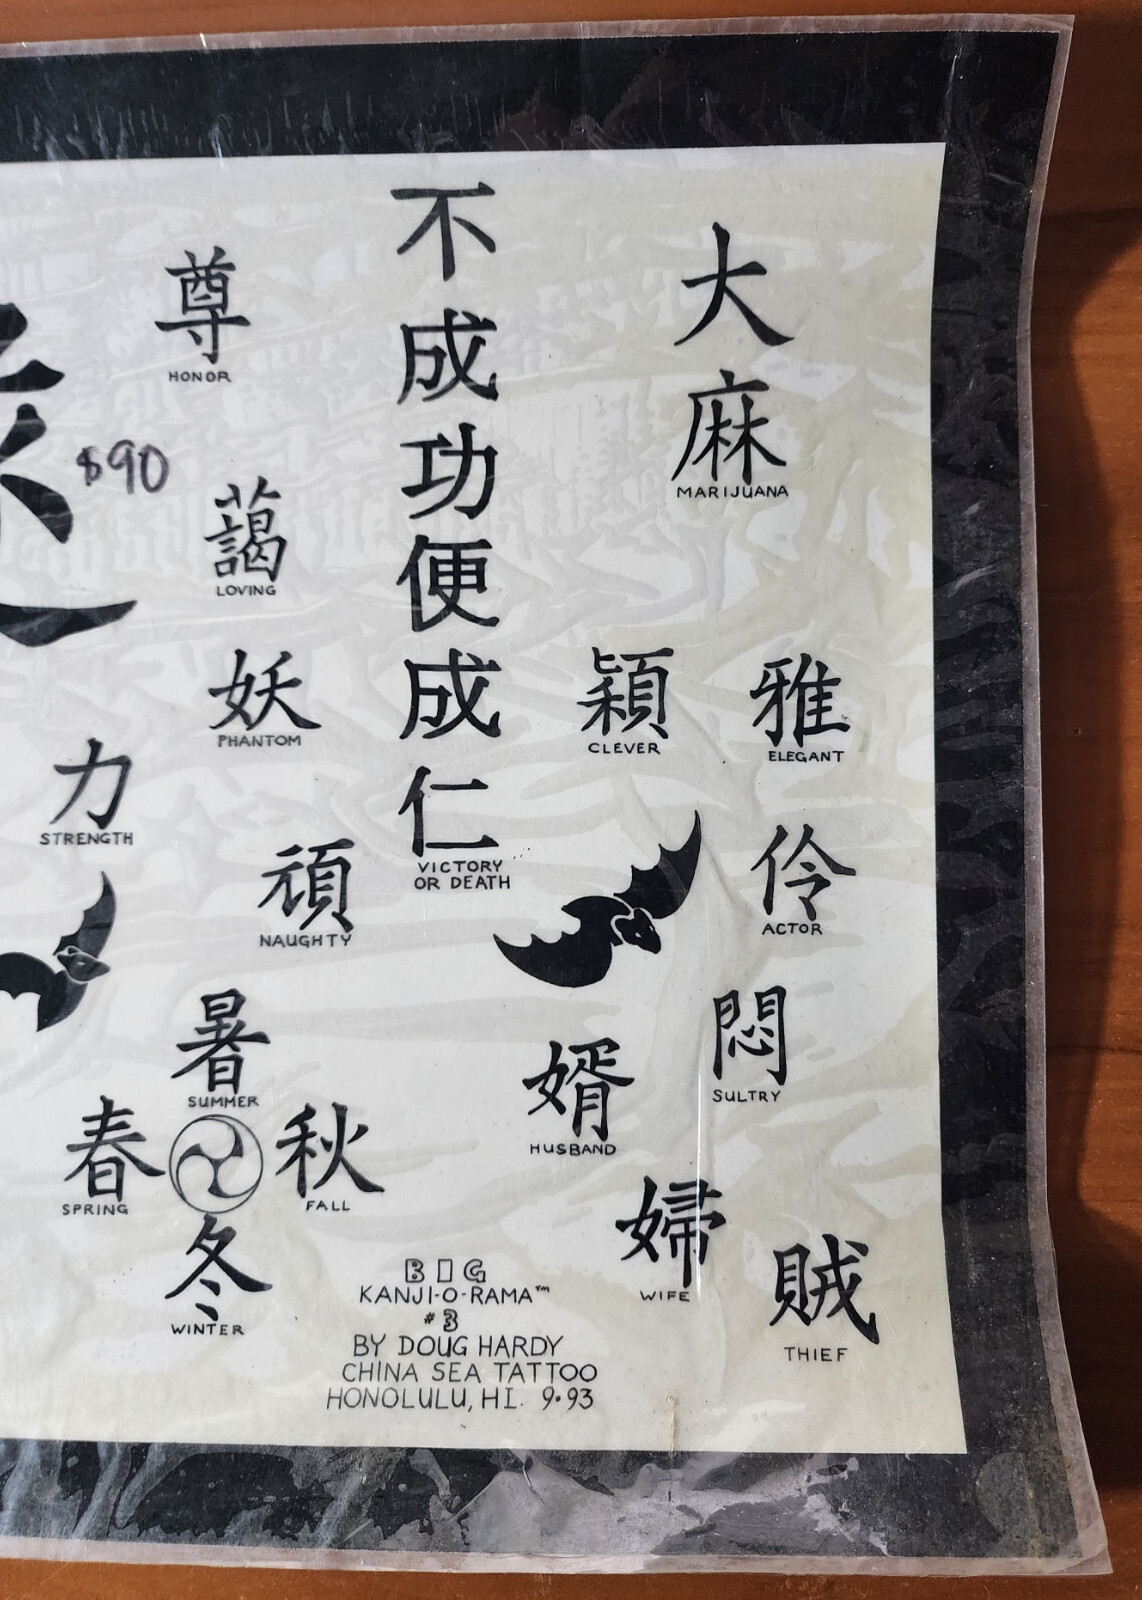 尊
HONOR
$90
藹
LOVING
妖
PHANTOM
力
STRENGTH
頑
NAUGHTY
暑
SUMMER
春
SPRING
秋
FALL
冬
WINTER
不成功便成仁
VICTORY
OR DEATH
大麻
MARIJUANA
穎
CLEVER
雅
ELEGANT
伶
ACTOR
悶
SULTRY
婿
HUSBAND
婦
WIFE
賊
THIEF
BIG
KANJI-O-RAMA™
#3
BY DOUG HARDY
CHINA SEA TATTOO
HONOLULU, HI. 9·93